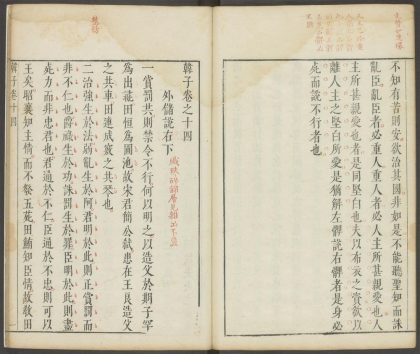 不知有若則安欲治其國非如是不能聽聖知而誅
亂臣亂臣者必重人重人者必人主所甚親愛也人
主所甚親愛也者是同堅白也夫以布衣之資欲以
離人主之堅白所愛是猶解左髀說右髀者是身必
死而說不行者也
韓子卷之十四
外儲說右下
一賞罰共則禁令不行何以明之以造父於期子罕
為出彘田恒為圃池故宋君簡公弒患在王良造父
之共車田連成竅之共琴也
二治強生於法弱亂生於阿君明於此則正賞罰而
非不仁也爵祿生於功誅罰生於罪臣明於此則盡
死力而非忠君也君通於不仁臣通於不忠則可以
王矣昭襄知主情而不發五苑田鮪知臣情故教田
韓子卷十四